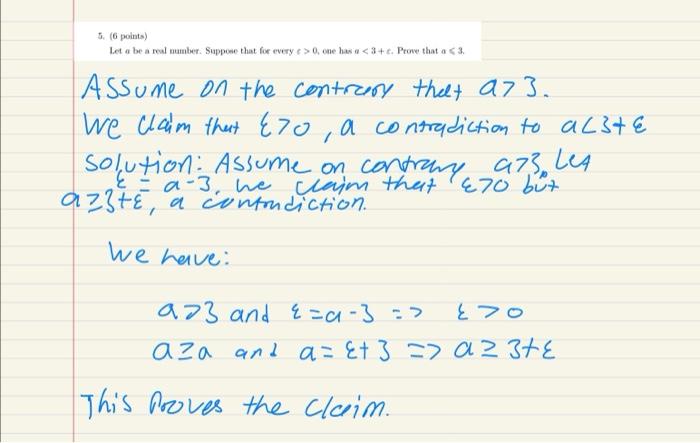 5. (6 points)
Let a be a real number. Suppose that for every ε > 0, one has a < 3 + ε. Prove that a ⩽ 3.
Assume on the contrary that a>3.
We claim that ε>0, a contradiction to a<3+ε
solution: Assume on contrary a>3. Let
ε = a-3, we claim that ε>0 but
a≥3+ε, a contradiction.
We have:
a>3 and ε=a-3 => ε>0
a≥a and a=ε+3 => a≥3+ε
This Proves the claim.